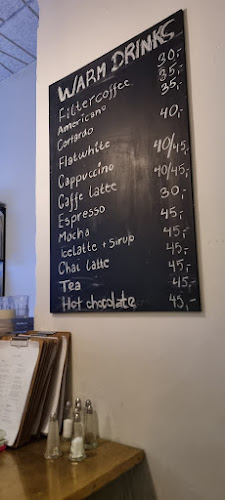 WARM DRINKS
Filtercoffee 30,-
Americano 35,-
Cortardo 35,-
Flatwhite 40,-
Cappuccino 40/45,
Caffe latte 40/45,-
Espresso 30,-
Mocha 45,-
Icelatte + Sirup 45,-
Chai latte 45,-
Tea 45,-
Hot chocolate 45,-